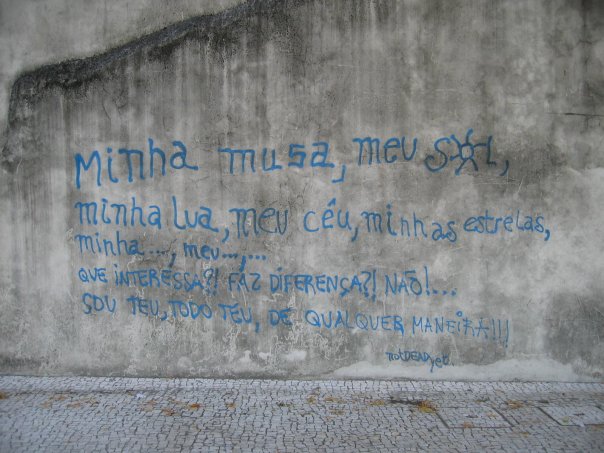 Minha musa, meu SOL,
minha lua, meu céu, minhas estrelas,
minha..., meu...,...
QUE INTERESSA?! FAZ DIFERENÇA?! NÃO!...
SOU TEU, TODO TEU, DE QUALQUER MANEIRA!!!
notDEADyet.